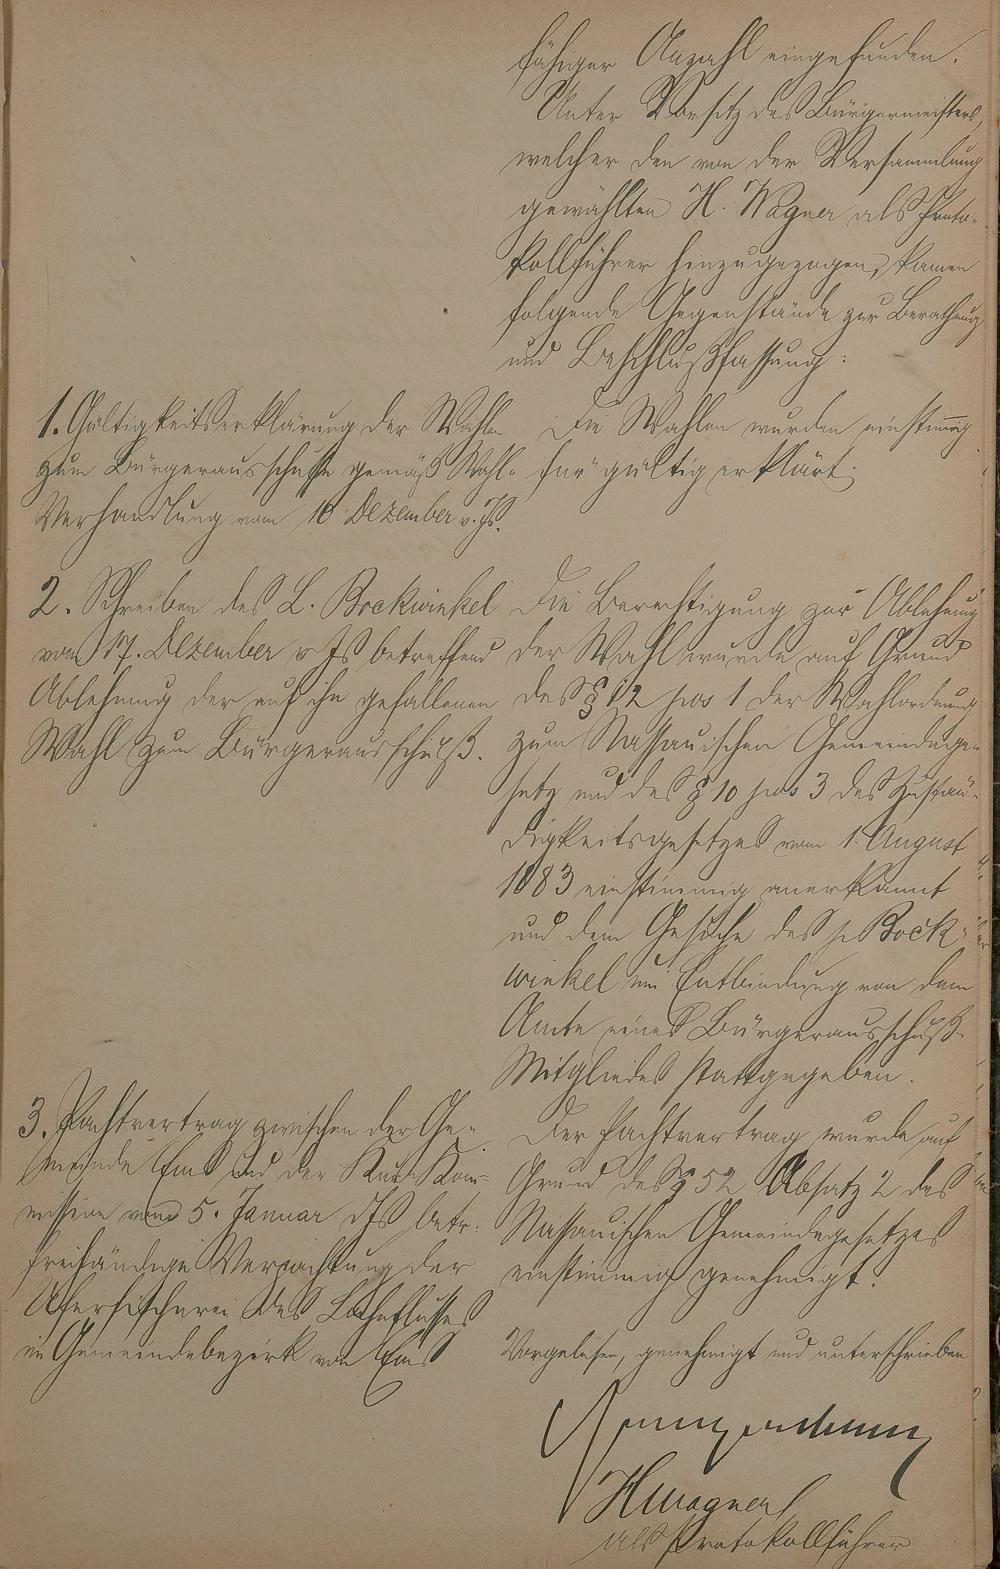 fähiger Anzahl eingefunden.
Unter Vorsitz des Bürgermeisters,
welcher den von der Versammlung
gewählten H. Wagner als Proto-
kollführer hinzugezogen, kamen
folgende Gegenstände zur Berathung
und Beschlußfassung:
1. Gültigkeitserklärung der Wahlen
zum Bürgerausschuße gemäß Wahl-
Verhandlung vom 10 Dezember v. Js.
Die Wahlen wurden einstimmig
für gültig erklärt.
2. Schreiben des L. Bockwinkel
vom 17. Dezember v Js betreffend
Ablehnung der auf ihn gefallenen
Wahl zum Bürgerausschuß.
Die Berechtigung zur Ablehnung
der Wahl wurde auf Grund
des § 12 pos 1 der Wahlordnung
zum Nassauischen Gemeindege-
setz und des § 10 pos 3 des Zustän-
digkeitsgesetzes vom 1. August
1883 einstimmig anerkannt
und dem Gesuche des p Bock-
winkel um Entbindung von dem
Amte eines Bürgerausschuß-
Mitgliedes stattgegeben.
3. Pachtvertrag zwischen der Ge-
meinde Ems und der Kur-Kom-
mission vom 5. Januar d Js betr.
freihändige Verpachtung der
Uferfischerei des Lahnflusses
im Gemeindebezirk von Ems
Der Pachtvertrag wurde auf
Grund des § 52 Absatz 2 des
Nassauischen Gemeindegesetzes
einstimmig genehmigt.
Vorgelesen, genehmigt und unterschrieben
H Wagner
als Protokollführer